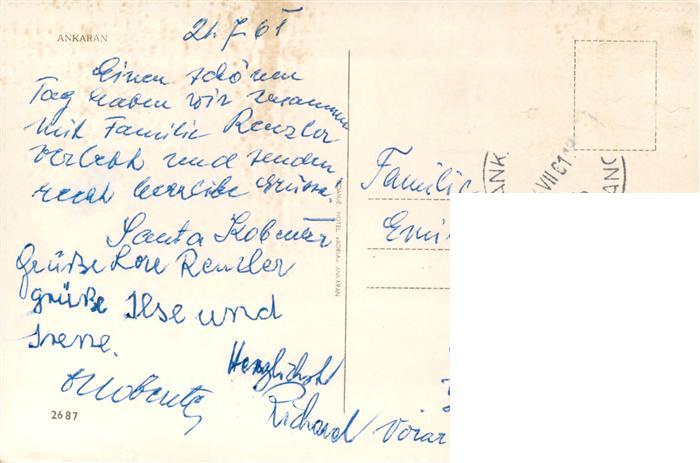 ANKARAN
21.7.61
Einen schönen
Tag haben wir zusammen
mit Familie Renzler
verlebt und senden
recht herzliche Grüsse!
Santa
Grüße Lore Renzler
grüße Ilse und
Irene.
Herzlichst
Richard
2687
HOTEL "ADRIA" ANKARAN
Familie
Emi
Vorar
ANK
VII 61